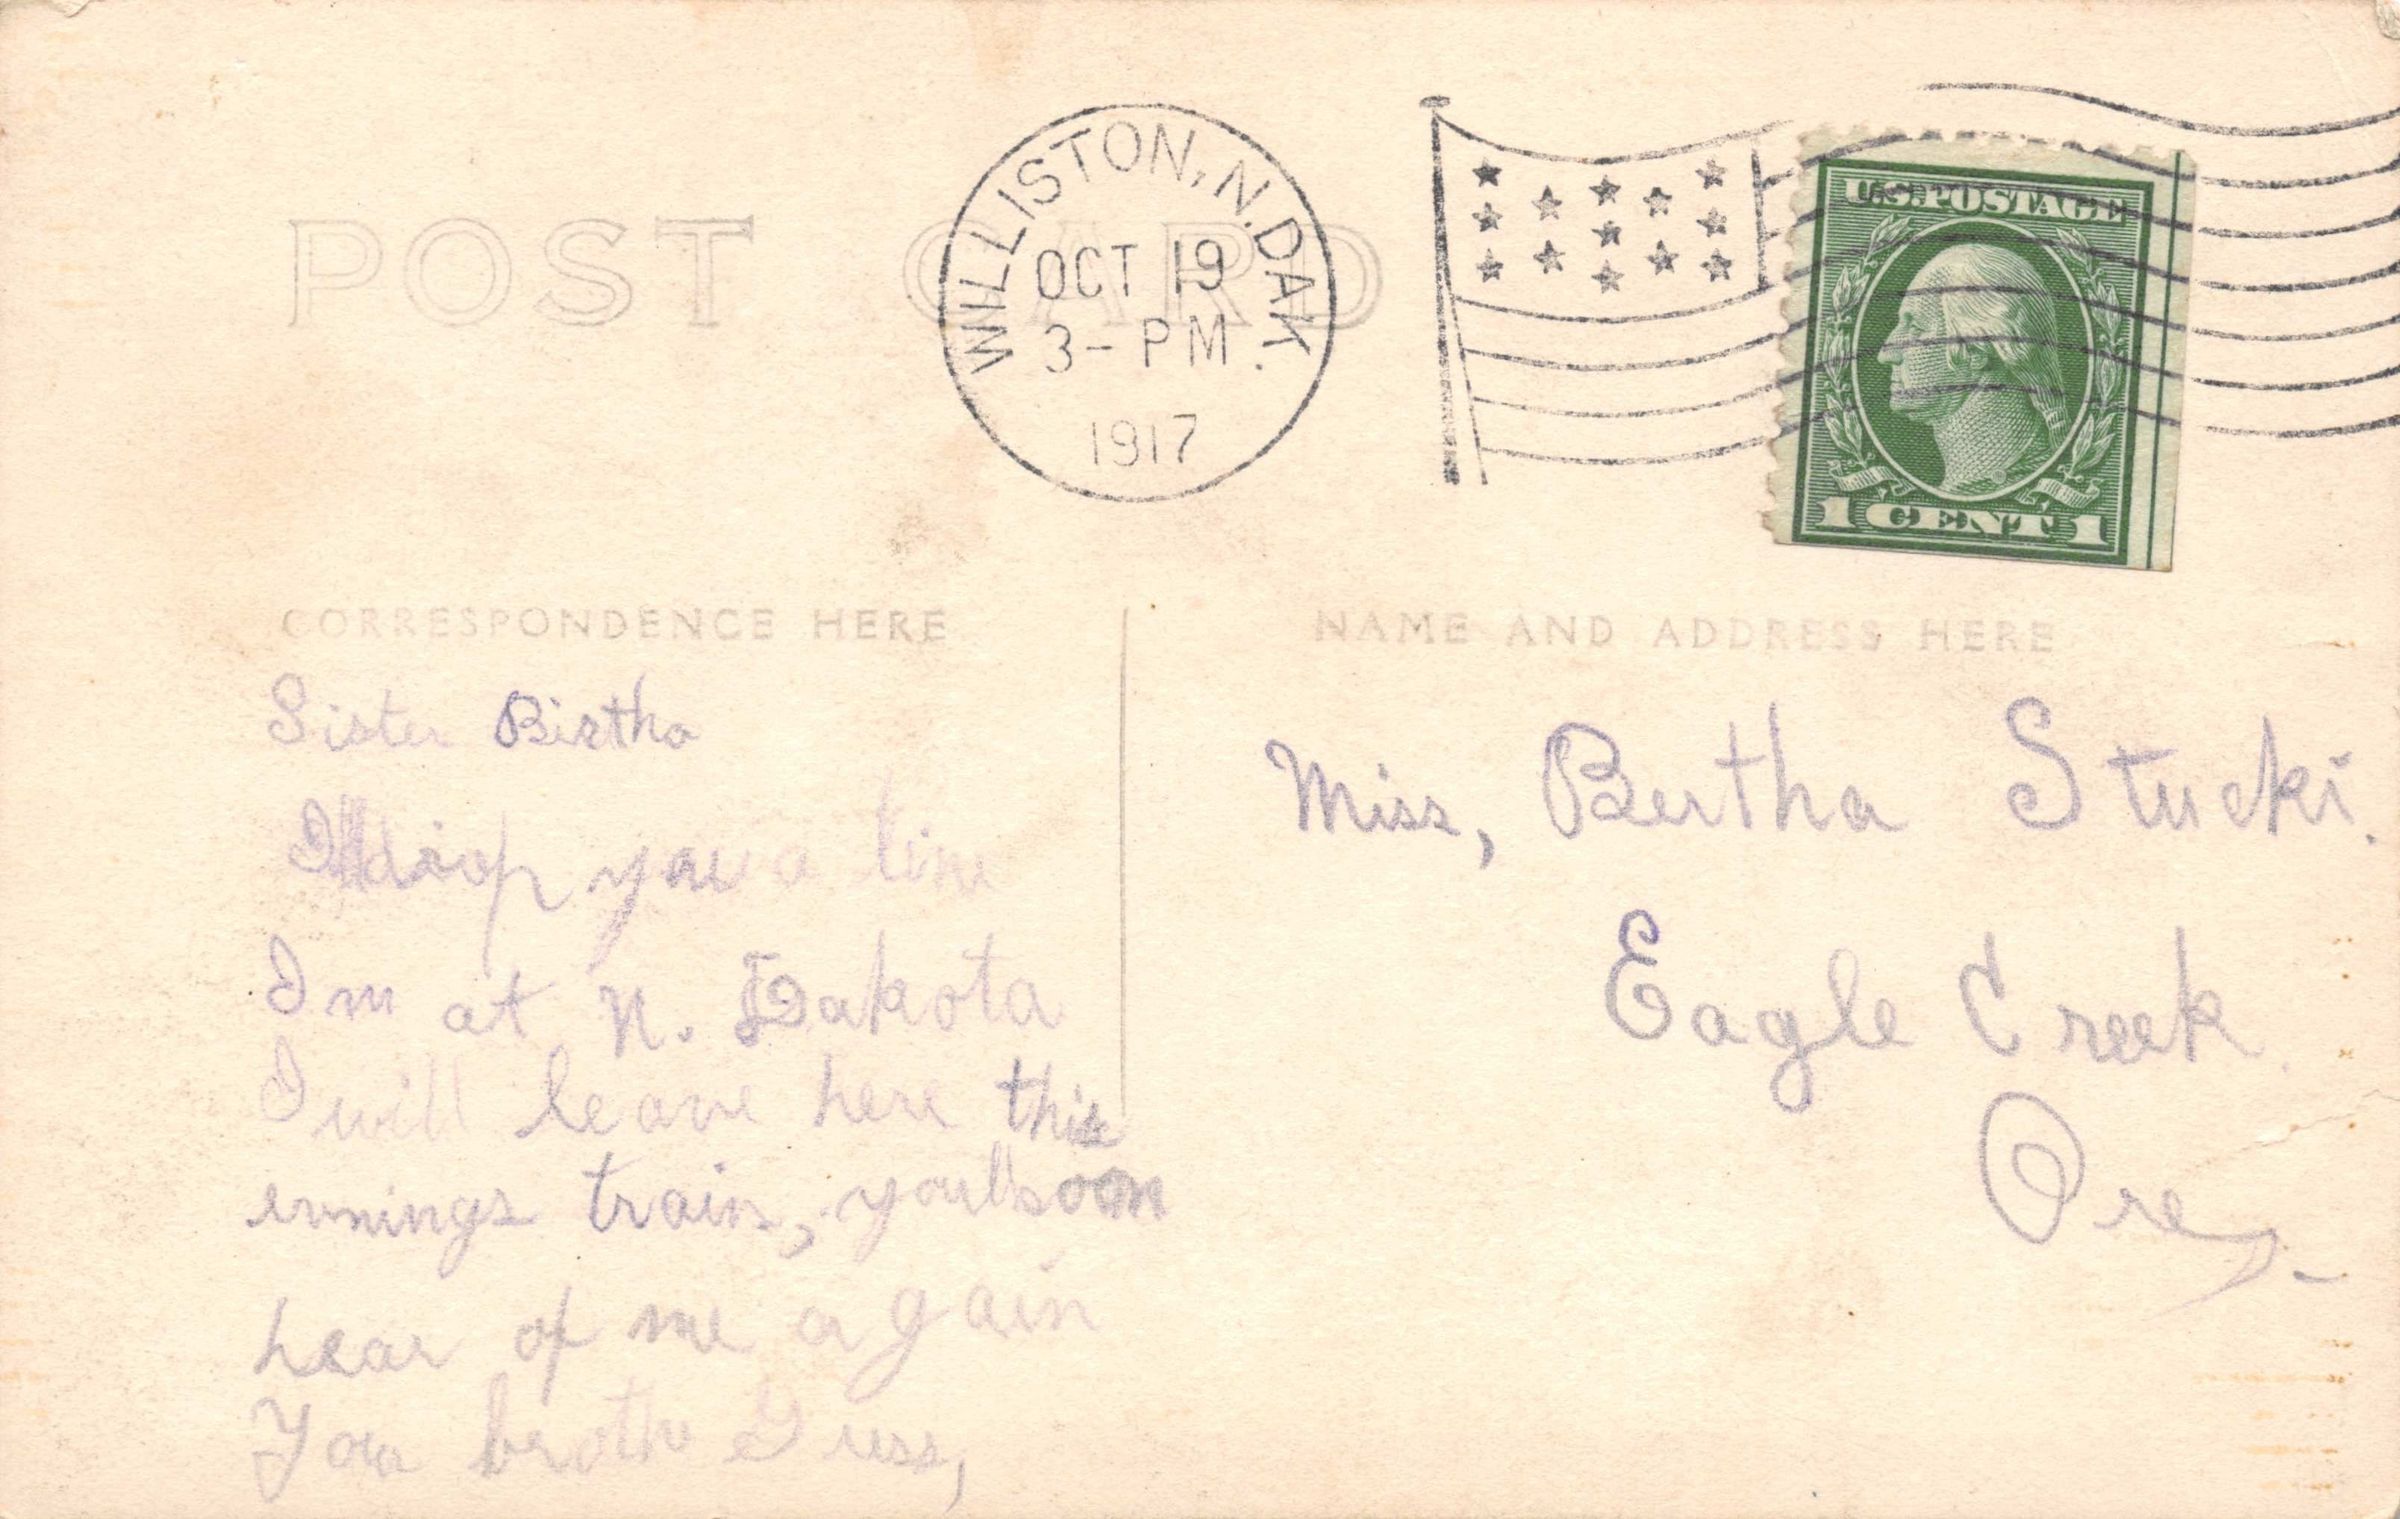 WILLISTON, N. DAK.
OCT 19
3 - PM
1917
U.S. POSTAGE
1 CENT 1
POST CARD
CORRESPONDENCE HERE
NAME AND ADDRESS HERE
Sister Birtha
I'll drop you a line
I'm at N. Dakota
I will leave here this
evnings train, you'll soon
hear of me again
Your brother Guss,
Miss, Bertha Stucki.
Eagle Creek.
Ore,-